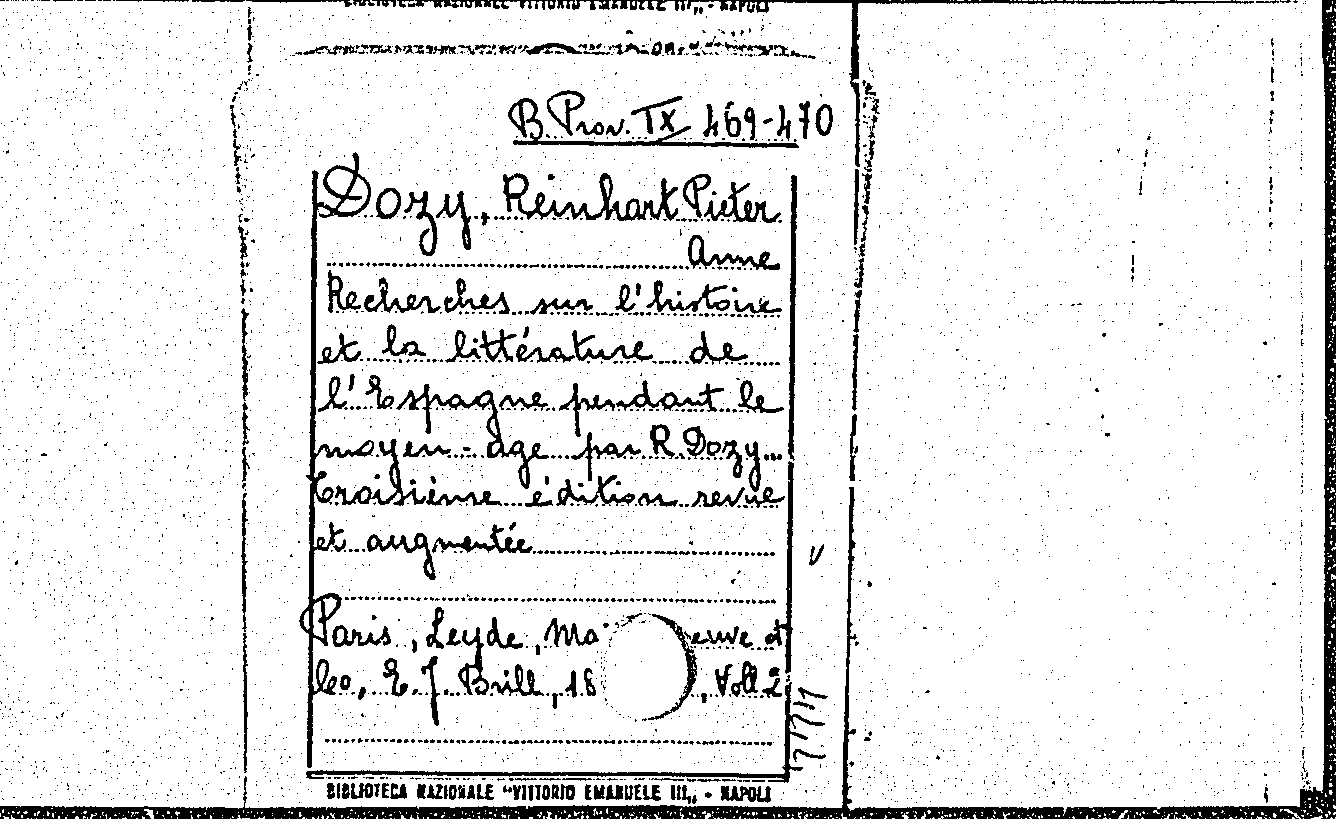 BIBLIOTECA NAZIONALE "VITTORIO EMANUELE III„ - NAPOLI
B. Prov. IX 469-470
Dozy, Reinhart Pieter
Anne
Recherches sur l'histoire
et la littérature de
l'Espagne pendant le
moyen-age par R. Dozy...
Troisième édition revue
et augmentée
Paris, Leyde, Ma euve et
Co, E. J. Brill, 18 , Voll 2
BIBLIOTECA NAZIONALE "VITTORIO EMANUELE III„ - NAPOLI